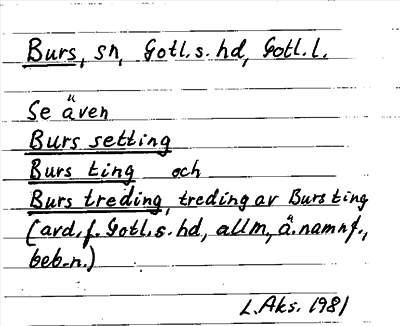 Burs, sn, Gotl.s.hd, Gotl.l.
Se även
Burs setting
Burs ting och
Burs treding, treding av Burs ting
(avd.f. Gotl.s.hd, allm, ä.namnf.,
beb.n.)
L.Aks. 1981